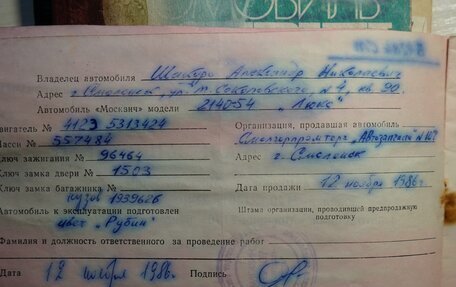 Владелец автомобиля Александр Николаевич
Адрес г. Смоленск, ул. М. Соколовского, № 4, кв. 90.
Автомобиль «Москвич» модели 2140-54 „Люкс“
двигатель № 4123 5313424
шасси № 557484
Ключ зажигания № 96464
Ключ замка двери № 1503
Ключ замка багажника №
кузов 1939626
Автомобиль к эксплуатации подготовлен
цвет „Рубин“
Организация, продавшая автомобиль
Смолгорпромторг № 10?
Адрес г. Смоленск
Дата продажи 12 ноября 1986 г.
Штамп организации, проводившей предпродажную
подготовку
Фамилия и должность ответственного за проведение работ
Дата 12 ноября 1986г. Подпись